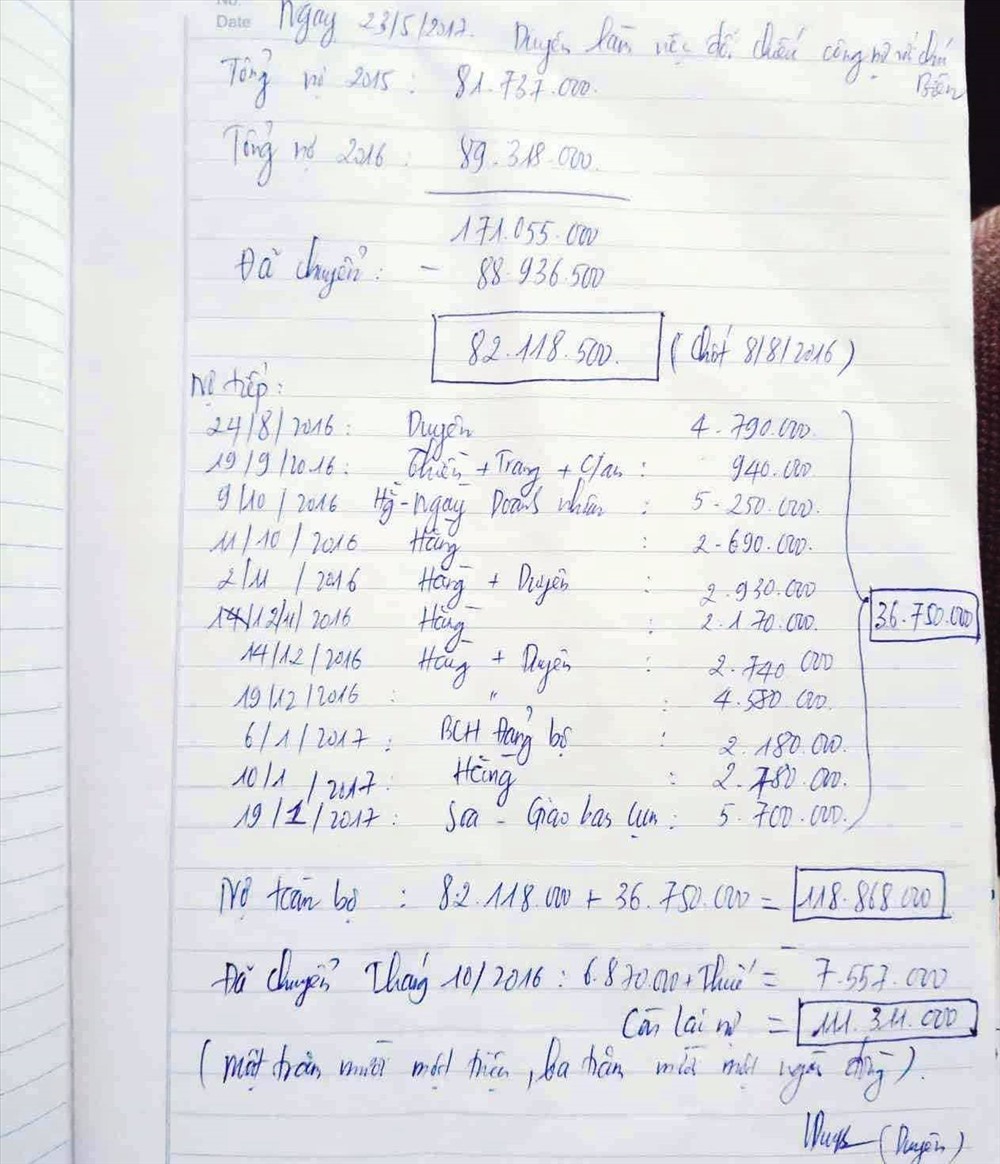 No.
Date Ngày 23/5/2017. Duyên làm việc đối chiếu công nợ với chú
Tổng nợ 2015 : 81.737.000.
Tổng nợ 2016 : 89.318.000
171.055.000
Đã chuyển : - 88.936.500
82.118.500. (Chốt 8/8/2016)
Nợ tiếp :
24/8/2016 : Duyên 4.790.000.
19/9/2016 : + Trang + C/an : 940.000
9/10/2016 Hg - Ngày Doanh nhân : 5.250.000.
11/10/2016 Hằng : 2.690.000.
2/11/2016 Hằng + Duyên : 2.930.000
12/11/2016 Hằng : 2.170.000.
14/12/2016 Hằng + Duyên : 2.740.000
19/12/2016 : " : 4.580.000.
36.750.000
6/1/2017 : BCH Đảng bộ : 2.180.000.
10/1/2017 : Hằng : 2.780.000.
19/1/2017 : Sóa - Giao ban cụm : 5.700.000.
Nợ toàn bộ : 82.118.000 + 36.750.000 = 118.868.000
Đã chuyển Tháng 10/2016 : 6.870.000 + Thuế = - 7.557.000
Còn lại nợ = 111.311.000
(Một trăm mười một triệu, ba trăm mười một ngàn đồng).
(Duyên)